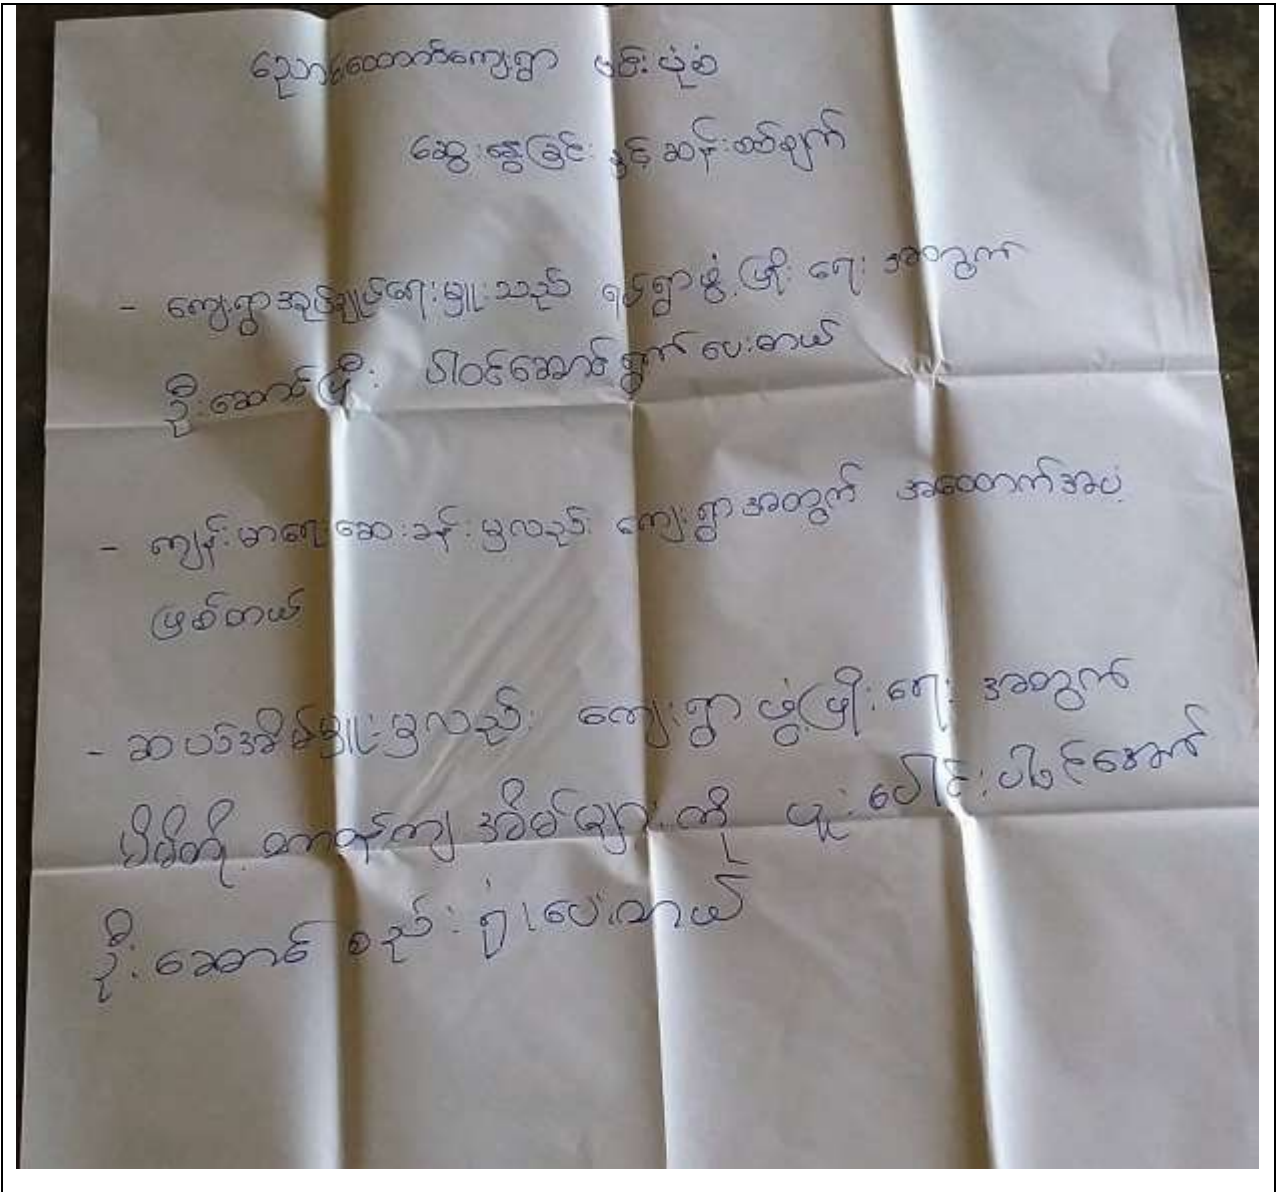 ညောင်ထောက်ကျေးရွာ ဗင်းပုံစံ
ဆွေးနွေးခြင်း နှင့် ဆန်းစစ်ချက်
- ကျေးရွာအုပ်ချုပ်ရေးမှူးသည် ရပ်ရွာဖွံ့ဖြိုးရေး အတွက်
ဦးဆောင်ပြီး ပါဝင်ဆောင်ရွက်ပေးတယ်
- ကျန်းမာရေးဆေးခန်းမှလည်း ကျေးရွာအတွက် အထောက်အပံ့
ဖြစ်တယ်
- ဆယ်အိမ်မှူးမှလည်း ကျေးရွာ ဖွံ့ဖြိုးရေး အတွက်
မိမိတို့ တာဝန်ကျ အိမ်များကို ပူးပေါင်းပါဝင်အောင်
ဦးဆောင် စည်းရုံးပေးတယ်